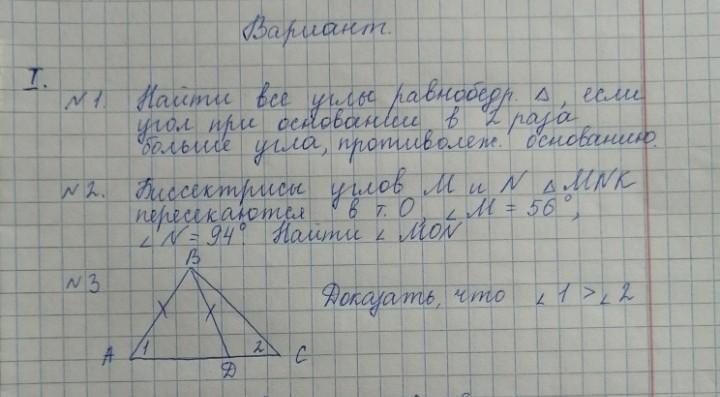 Вариант.
I.
№1. Найти все углы равнобедр. Δ, если
угол при основании в 2 раза
больше угла, противолеж. основанию.
№2. Биссектрисы углов M и N ΔMNK
пересекаются в т. O, ∠M = 56°,
∠N = 94° Найти ∠MON
№3
B
Доказать, что ∠1 > ∠2
A 1 D 2 C